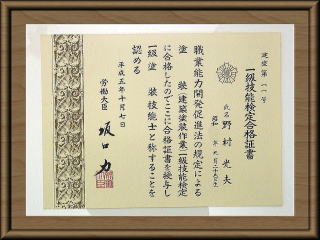 建塗第 一一 号
一級技能検定合格証書
氏名 野村光夫
昭和 年九月二十九日生
職業能力開発促進法の規定による
塗 装(建築塗装作業)一級技能検定
に合格したのでここに合格証書を授与し
一級塗 装技能士と称することを
認める
平成五年十月七日
労働大臣 坂口力